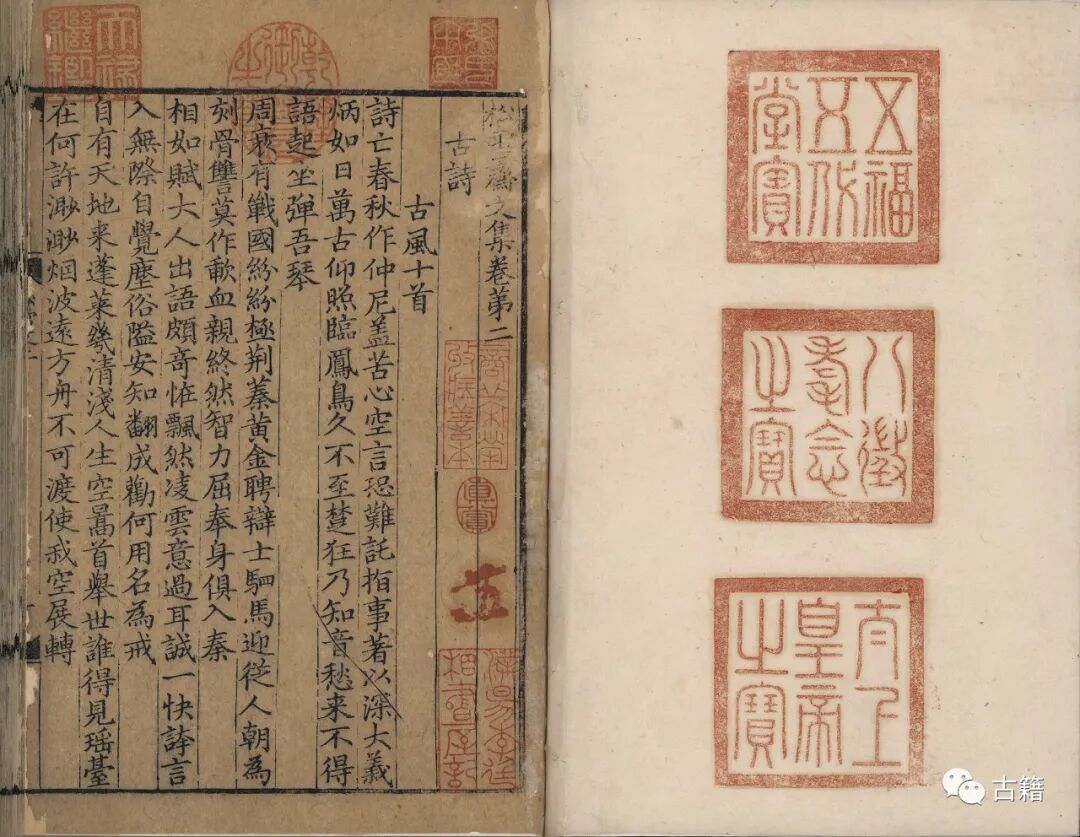 五福
五代
堂寶
八徵
耄念
之寶
太上
皇帝
之寶
松雪齋文集卷第二
古詩
古風十首
詩亡春秋作仲尼盖苦心空言恐難託指事著以深大義
炳如日萬古仰照臨鳳鳥久不至楚狂乃知音愁来不得
語起坐彈吾琴
周衰有戰國紛紛極荆蓁黄金聘辯士駟馬迎從人朝為
刻骨讐莫作歃血親終然智力屈奉身俱入秦
相如賦大人出語頗奇恠飄然凌雲意過耳誠一快誇言
入無際自覺塵俗隘安知翻成勸何用名為戒
自有天地来蓬莱幾清淺人生空暠首舉世誰得見瑶臺
在何許渺渺烟波遠方舟不可渡使我空展轉
乾隆御覽之寶
天禄
繼鑑
商丘宋犖
收藏善本
真賞
濮陽李廷
相書屋記
古籍